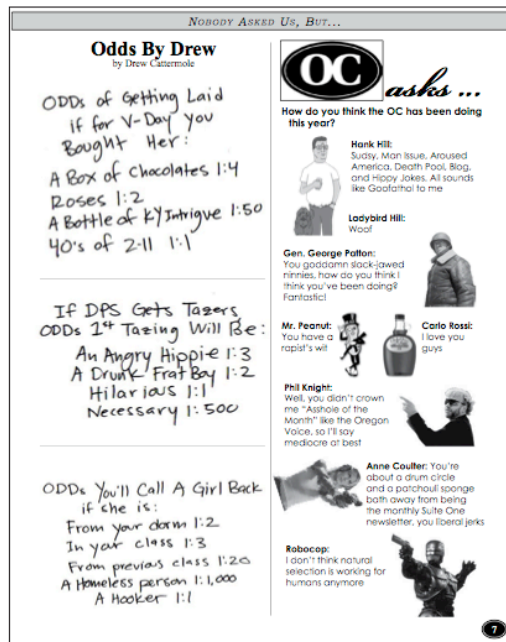 NOBODY ASKED US, BUT...
Odds By Drew
by Drew Cattermole
ODDs of Getting Laid
if for V-Day you
Bought Her:
A Box of Chocolates 1:4
Roses 1:2
A Bottle of KY Intrigue 1:50
40's of 2-11 1:1
If DPS Gets Tazers
ODDs 1st Tazing Will Be:
An Angry Hippie 1:3
A Drunk Frat Boy 1:2
Hilarious 1:1
Necessary 1:500
ODDs You'll Call A Girl Back
if she is:
From your dorm 1:2
In your class 1:3
From previous class 1:20
A Homeless person 1:1,000
A Hooker 1:1
OC asks ...
How do you think the OC has been doing
this year?
Hank Hill:
Suasy, Man Issue, Aroused
America, Death Pool, Blog,
and Hippy Jokes. All sounds
like Goofathol to me
Ladybird Hill:
Woof
Gen. George Patton:
You goddamn slack-jawed
ninnies, how do you think I
think you've been doing?
Fantastic!
Mr. Peanut:
You have a
rapist's wit
Carlo Rossi:
I love you
guys
Phil Knight:
Well, you didn't crown
me "Asshole of the
Month" like the Oregon
Voice, so I'll say
mediocre at best
Anne Coulter: You're
about a drum circle
and a patchouli sponge
bath away from being
the monthly Suite One
newsletter, you liberal jerks
Robocop:
I don't think natural
selection is working for
humans anymore
7